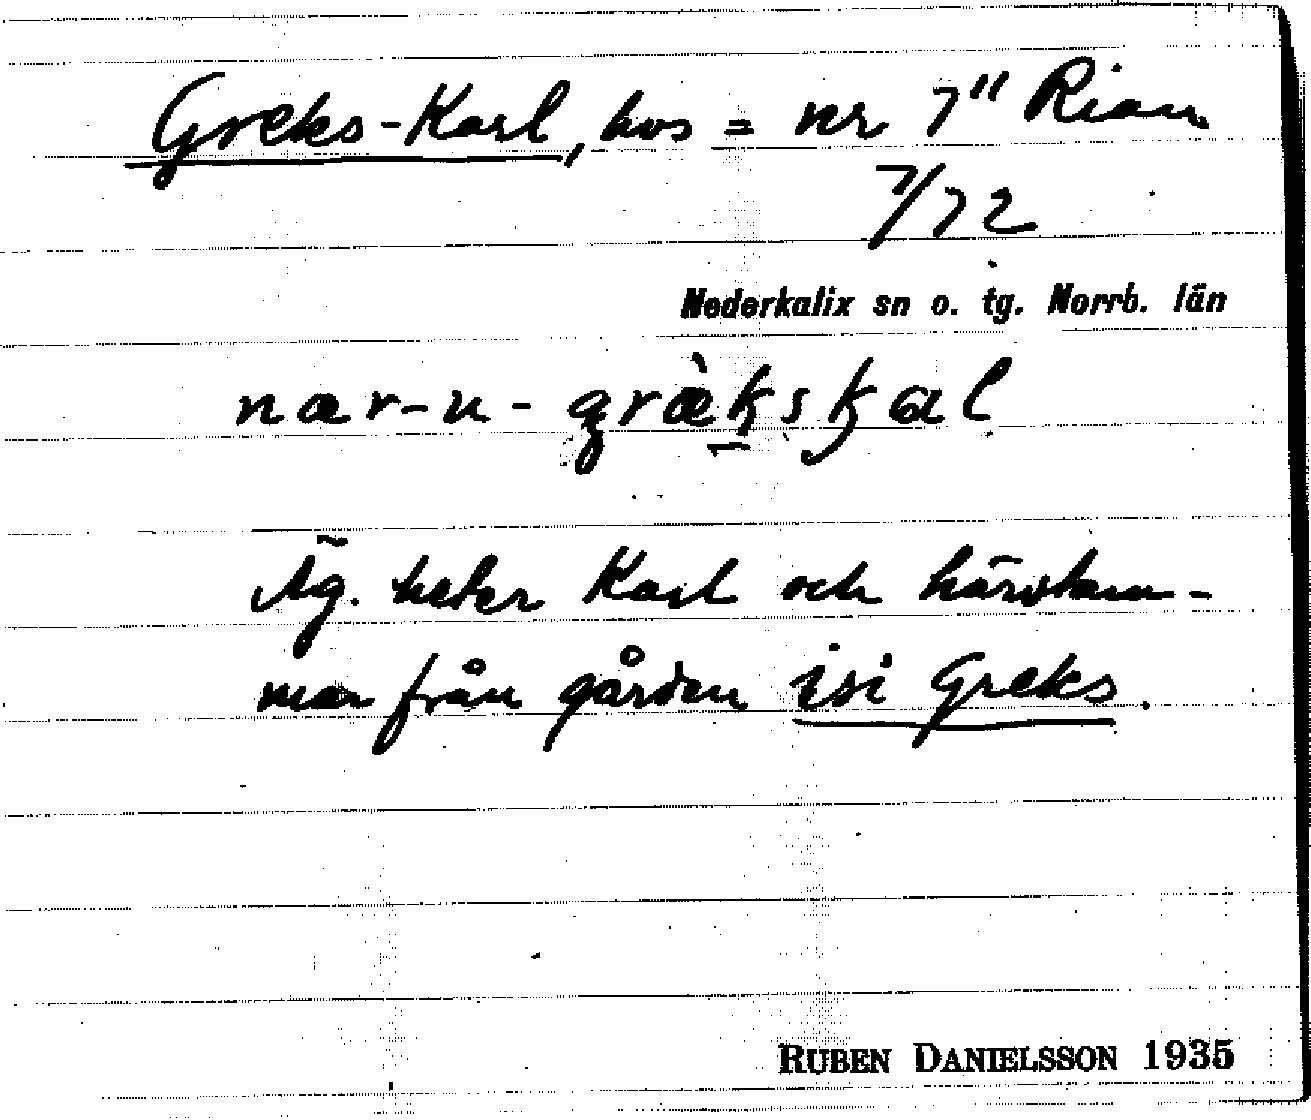 Greks-Karl, hos = nr 7" Rian
7/72
Nederkalix sn o. tg. Norrb. län
nær-u-græ̀kskal
Äg. heter Karl och härstam-
mar från gården isi Greks.
RUBEN DANIELSSON 1935